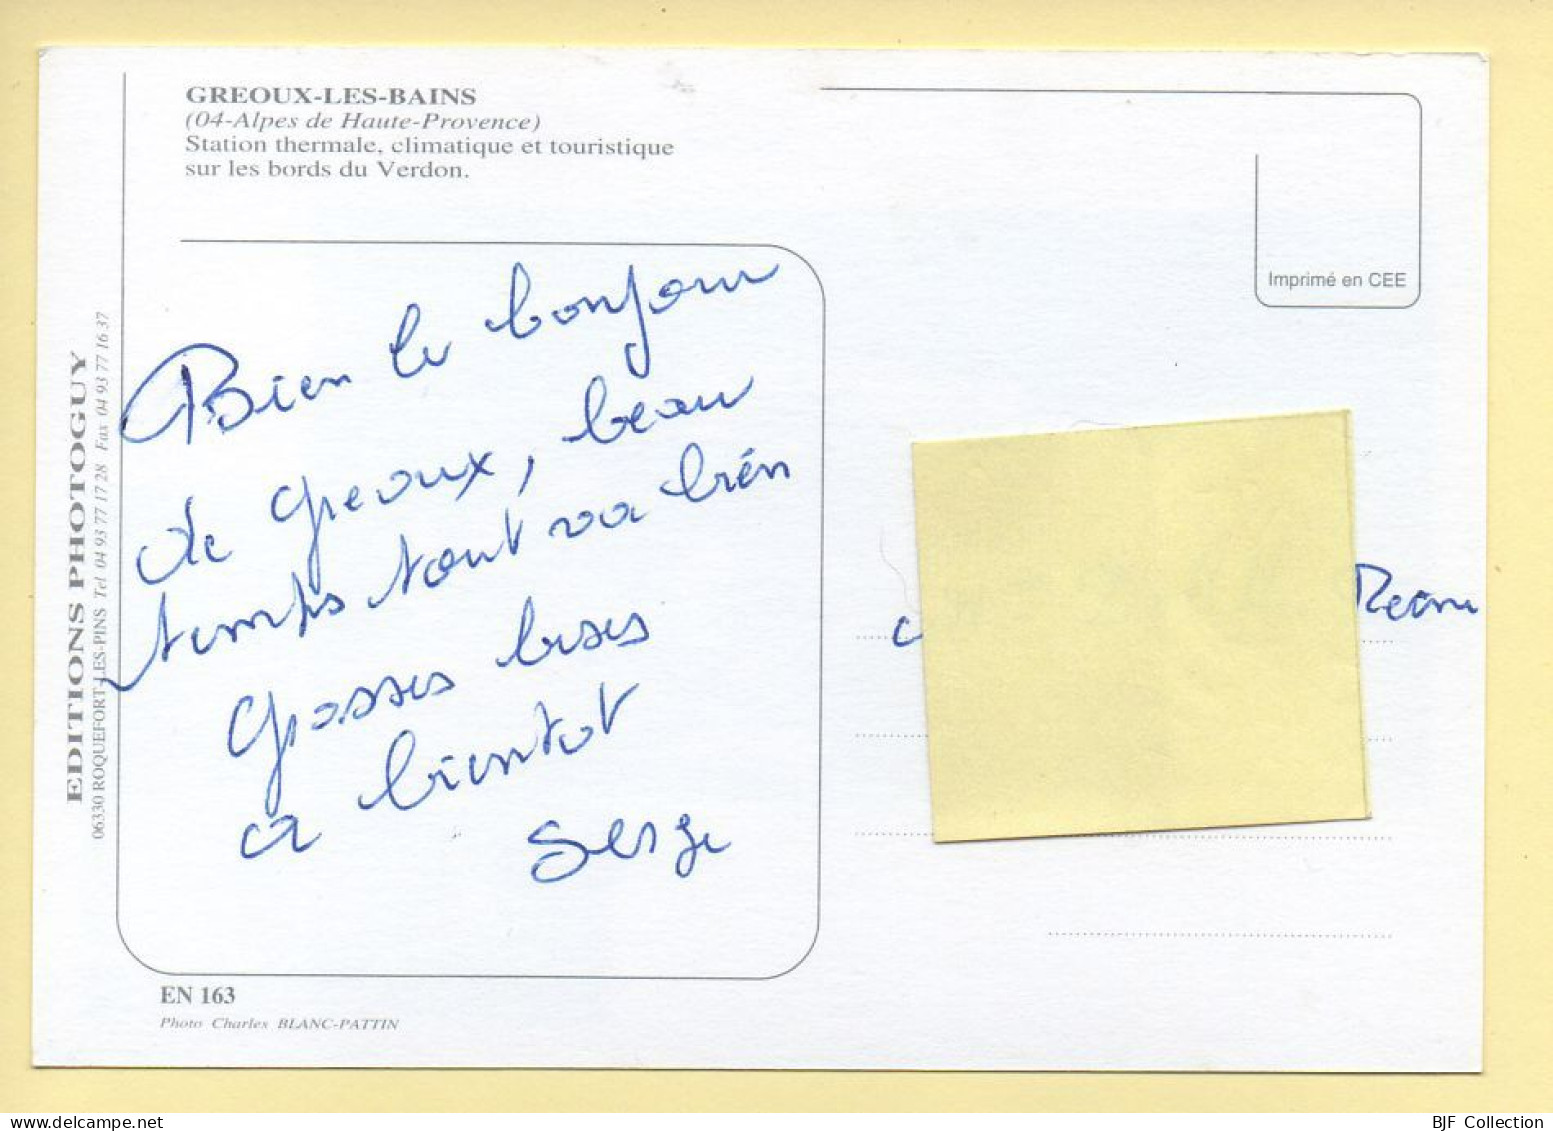 GREOUX-LES-BAINS
(04-Alpes de Haute-Provence)
Station thermale, climatique et touristique
sur les bords du Verdon.
Imprimé en CEE
EDITIONS PHOTOGUY
06330 ROQUEFORT-LES-PINS Tel 04 93 77 17 28 Fax 04 93 77 16 37
Bien le bonjour
de Greoux, beau
temps tout va bien
Grosses bises
a bientot
Serge
EN 163
Photo Charles BLANC-PATTIN
BJF Collection